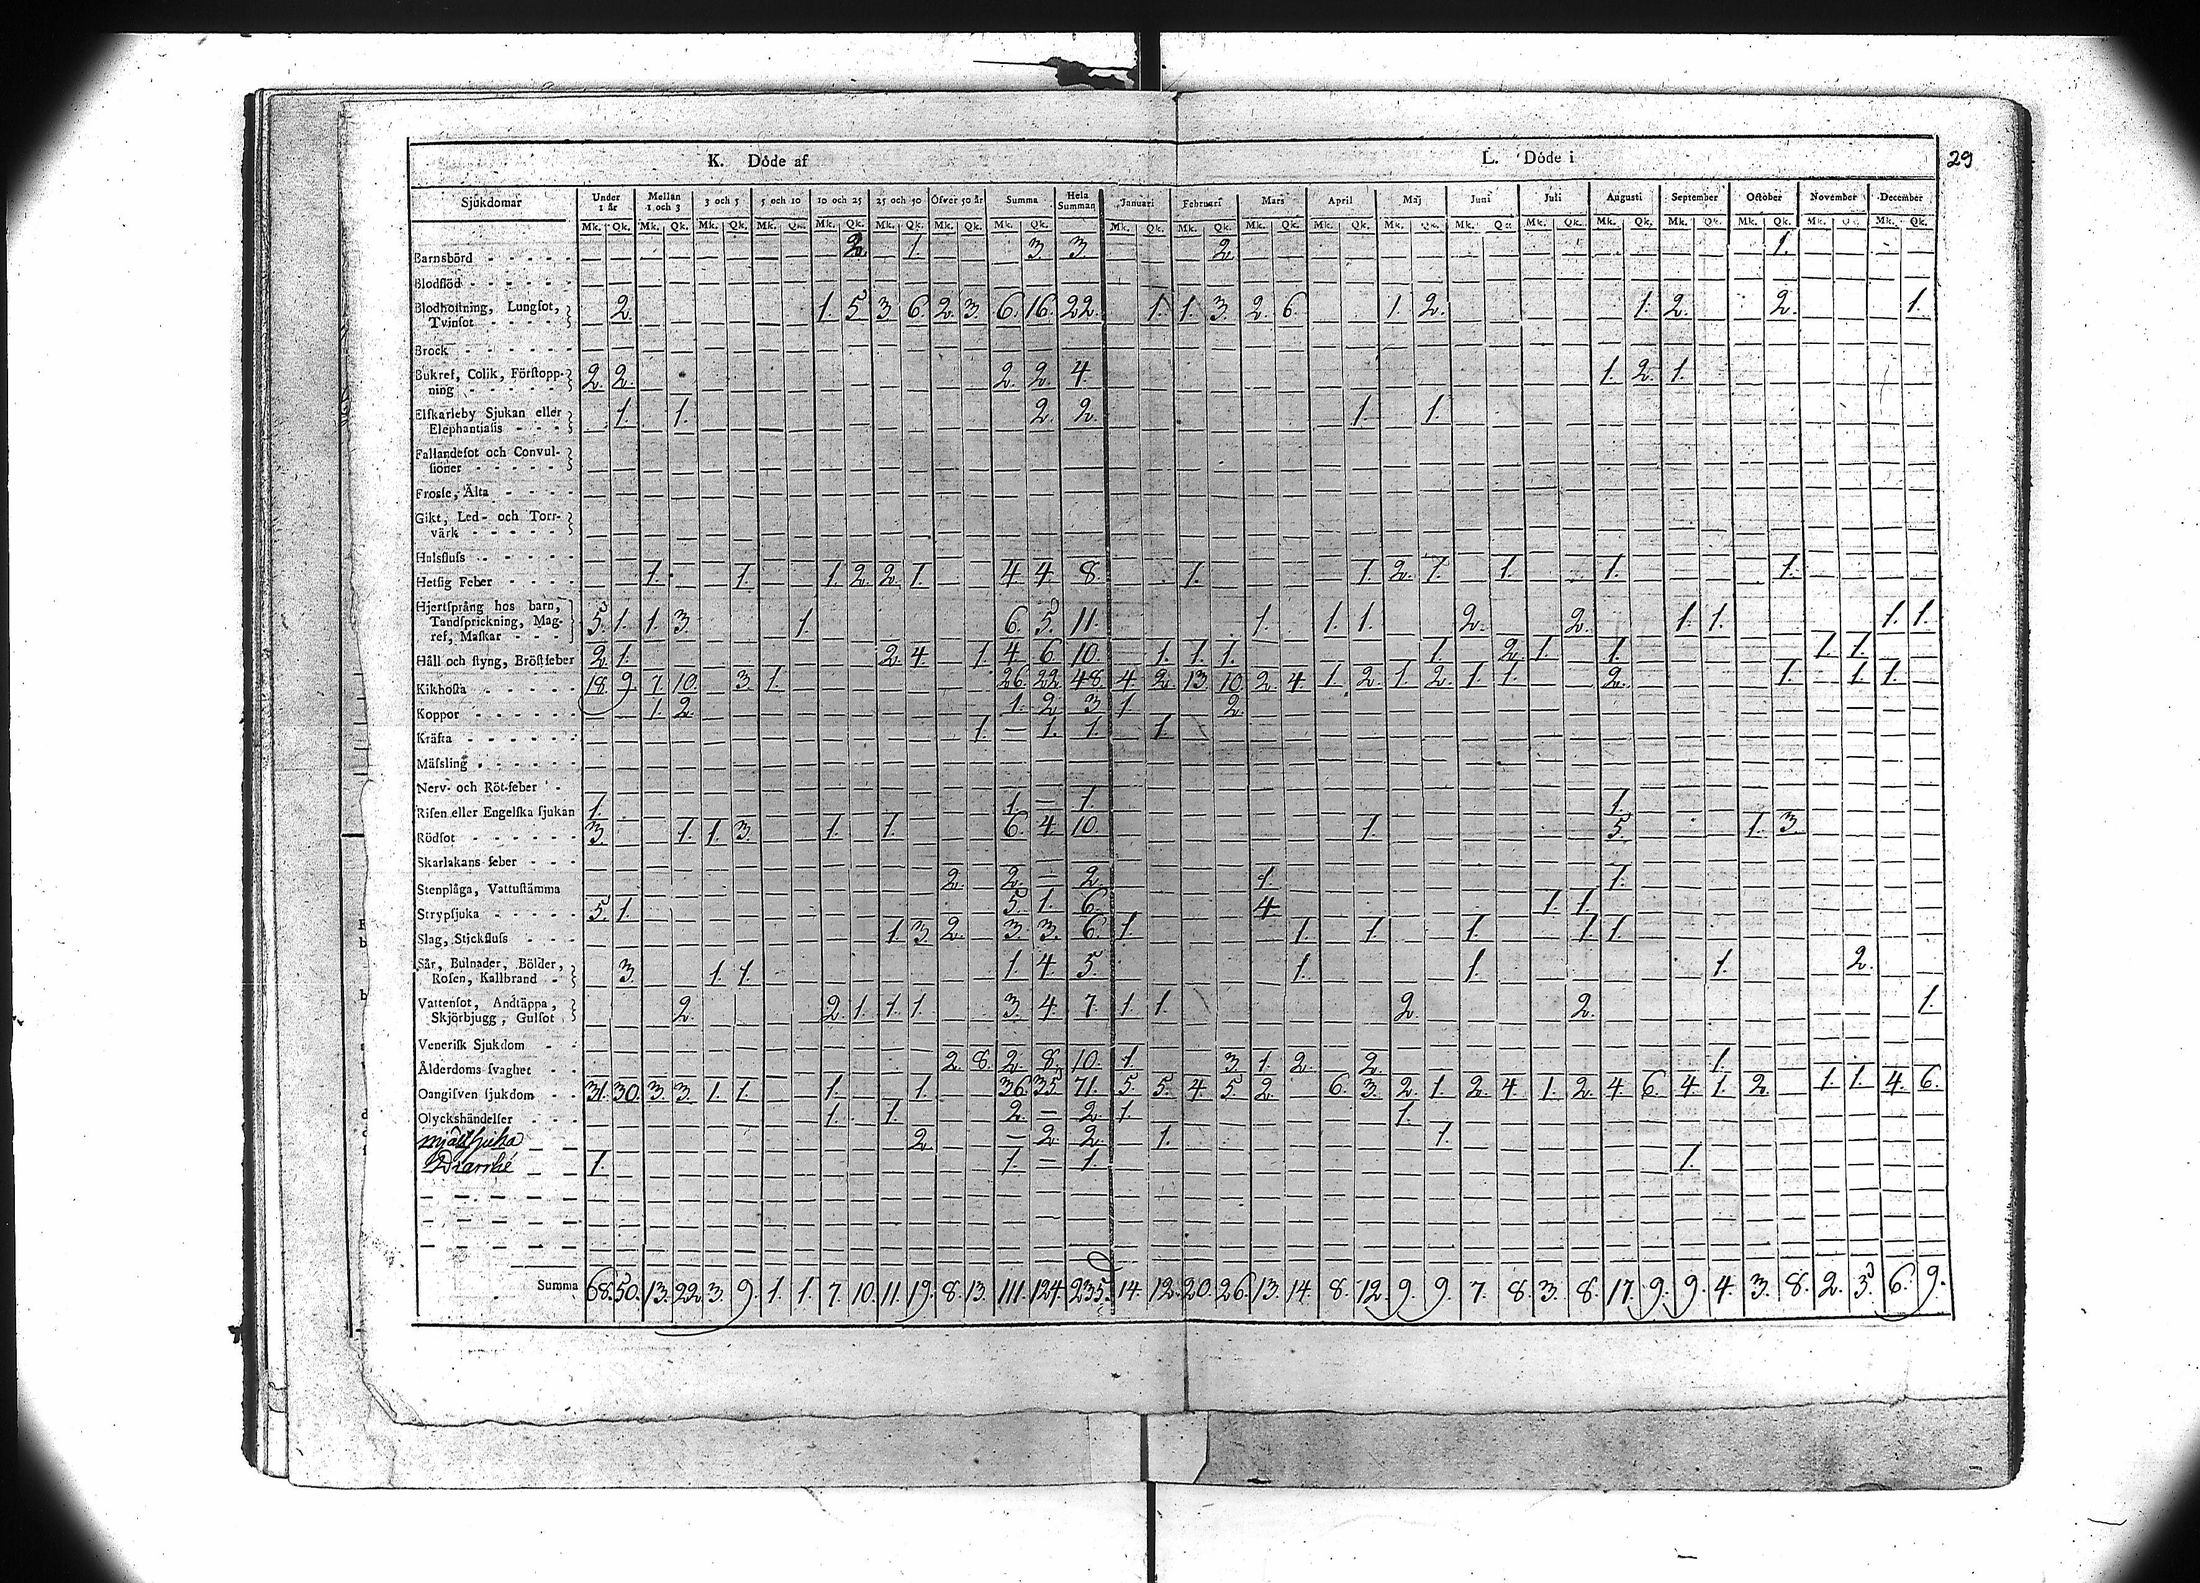 K. Döde af L. Döde i 29
Sjukdomar Under 1 år Mellan 1 och 3 3 och 5 5 och 10 10 och 25 25 och 50 Öfver 50 år Summa Hela Summan Januari Februari Mars April Maj Juni Juli Augusti September October November December
Mk. Qk. Mk. Qk. Mk. Qk. Mk. Qk. Mk. Qk. Mk. Qk. Mk. Qk. Mk. Qk. Mk. Qk. Mk. Qk. Mk. Qk. Mk. Qk. Mk. Qk. Mk. Qk. Mk. Qk. Mk. Qk. Mk. Qk. Mk. Qk. Mk. Qk. Mk. Qk.
Barnsbörd 2. 1. 3. 3. 2. 1.
Blodflöd
Blodhostning, Lungsot,
Tvinsot 2. 1. 5. 3. 6. 2. 3. 6. 16. 22. 1. 1. 3. 2. 6. 1. 2. 1. 2. 2. 1.
Brock
Bukref, Colik, Förstopp-
ning 2. 2. 2. 2. 4. 1. 2. 1.
Elskarleby Sjukan eller
Elephantiasis 1. 1. 2. 2. 1. 1.
Fallandesot och Convul-
sioner
Frossa, Älta
Gikt, Led- och Torr-
värk
Halsfluss
Hetsig Feber 1. 1. 1. 2. 2. 1. 4. 4. 8. 1. 1. 2. 1. 1. 1. 1.
Hjertsprång hos barn,
Tandsprickning, Mag-
ref, Maskar 5. 1. 1. 3. 1. 6. 5. 11. 1. 1. 1. 2. 2. 1. 1. 1. 1.
Håll och styng, Bröstfeber 2. 1. 2. 4. 1. 4. 6. 10. 1. 1. 1. 1. 2. 1. 1. 1. 1.
Kikhosta 18. 9. 7. 10. 3. 1. 26. 22. 48. 4. 2. 13. 10. 2. 4. 1. 2. 1. 2. 1. 1. 2. 1. 1. 1.
Koppor 1. 2. 1. 2. 3. 1. 2.
Kräfta 1. — 1. 1. 1.
Mässling
Nerv- och Röt-feber
Risen eller Engelska sjukan 1. 1. — 1. 1.
Rödsot 3. 1. 1. 3. 1. 1. 6. 4. 10. 1. 5. 1. 3.
Skarlakans feber
Stenplåga, Vattustämma 2. 2. — 2. 1. 1.
Strypsjuka 5. 1. 5. 1. 6. 4. 1. 1.
Slag, Stickfluss 1. 3. 2. 3. 3. 6. 1. 1. 1. 1. 1. 1.
Sår, Bulnader, Bölder,
Rosen, Kallbrand 3. 1. 1. 1. 4. 5. 1. 1. 1. 2.
Vattensot, Andtäppa,
Skjörbjugg, Gulsot 2. 2. 1. 1. 1. 3. 4. 7. 1. 1. 2. 2. 1.
Venerisk Sjukdom
Ålderdoms svaghet 2. 8. 2. 8. 10. 1. 3. 1. 2. 2. 1.
Oangifven sjukdom 31. 30. 3. 3. 1. 1. 1. 1. 36. 35. 71. 5. 5. 4. 5. 2. 6. 3. 2. 1. 2. 4. 1. 2. 4. 6. 4. 1. 2. 1. 1. 4. 6.
Olyckshändelser 1. 1. 2. — 2. 1. 1.
Mjältsjuka 2. — 2. 2. 1. 1.
Diarrhé 1. 1. — 1. 1.
Summa 68. 50. 13. 22. 3. 9. 1. 1. 7. 10. 11. 19. 8. 13. 111. 124. 235. 14. 12. 20. 26. 13. 14. 8. 12. 9. 9. 7. 8. 3. 8. 17. 9. 9. 4. 3. 8. 2. 3. 6. 9.